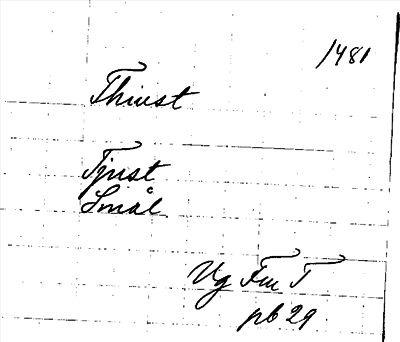 1481
Thiust
Tjust
Smål
Vg Fm T
pb 29